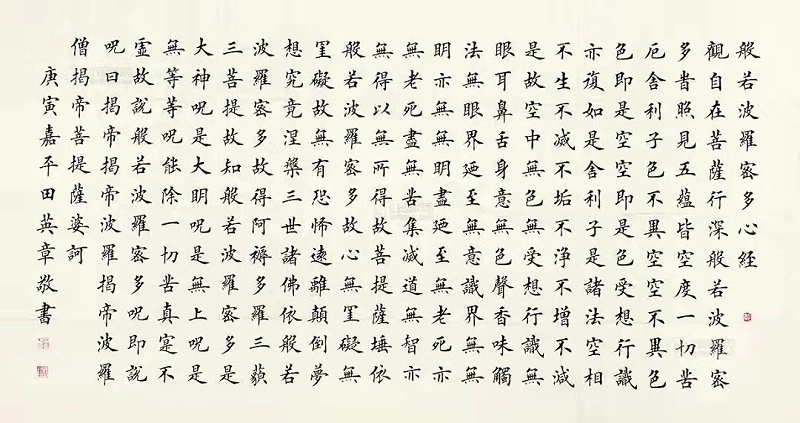 般若波羅密多心經
觀自在菩薩行深般若波羅密
多旹照見五蘊皆空度一切苦
厄舍利子色不異空空不異色
色即是空空即是色受想行識
亦復如是舍利子是諸法空相
不生不滅不垢不淨不增不減
是故空中無色無受想行識無
眼耳鼻舌身意無色聲香味觸
法無眼界廼至無意識界無無
明亦無無明盡廼至無老死亦
無老死盡無苦集滅道無智亦
無得以無所得故菩提薩埵依
般若波羅密多故心無罣礙無
罣礙故無有恐怖遠離顛倒夢
想究竟涅槃三世諸佛依般若
波羅密多故得阿耨多羅三藐
三菩提故知般若波羅密多是
大神呪是大明呪是無上呪是
無等等呪能除一切苦真寔不
虛故說般若波羅密多呪即說
呪曰揭帝揭帝波羅揭帝波羅
僧揭帝菩提薩婆訶
庚寅嘉平田英章敬書